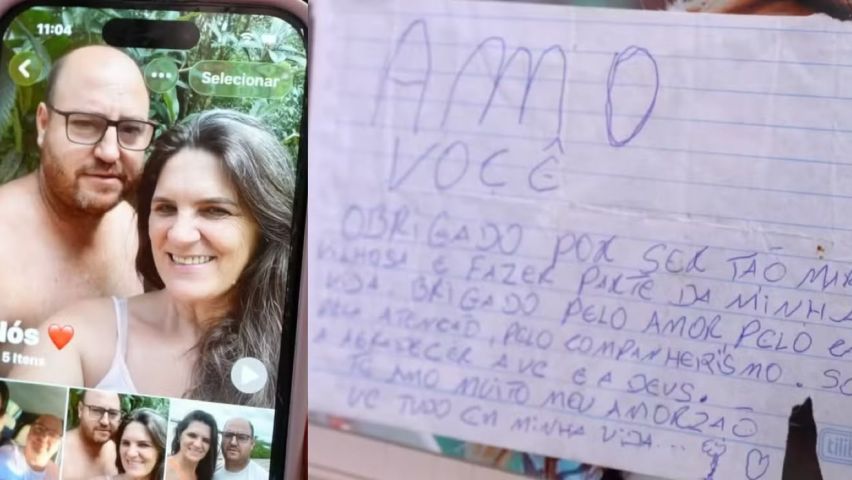 11:04
Selecionar
Nós ❤️
5 Itens
AMO
VOCÊ
OBRIGADO POR SER TÃO MARA
VILHOSA E FAZER PARTE DA MINHA
VIDA. BRIGADO PELO AMOR, PELO
PELA ATENCAO, PELO COMPANHEIRISMO. SÓ
A AGRADECER A VC E A DEUS.
TE AMO MUITO MEU AMORZAO
VC TUDO EM MINHA VIDA...
tili